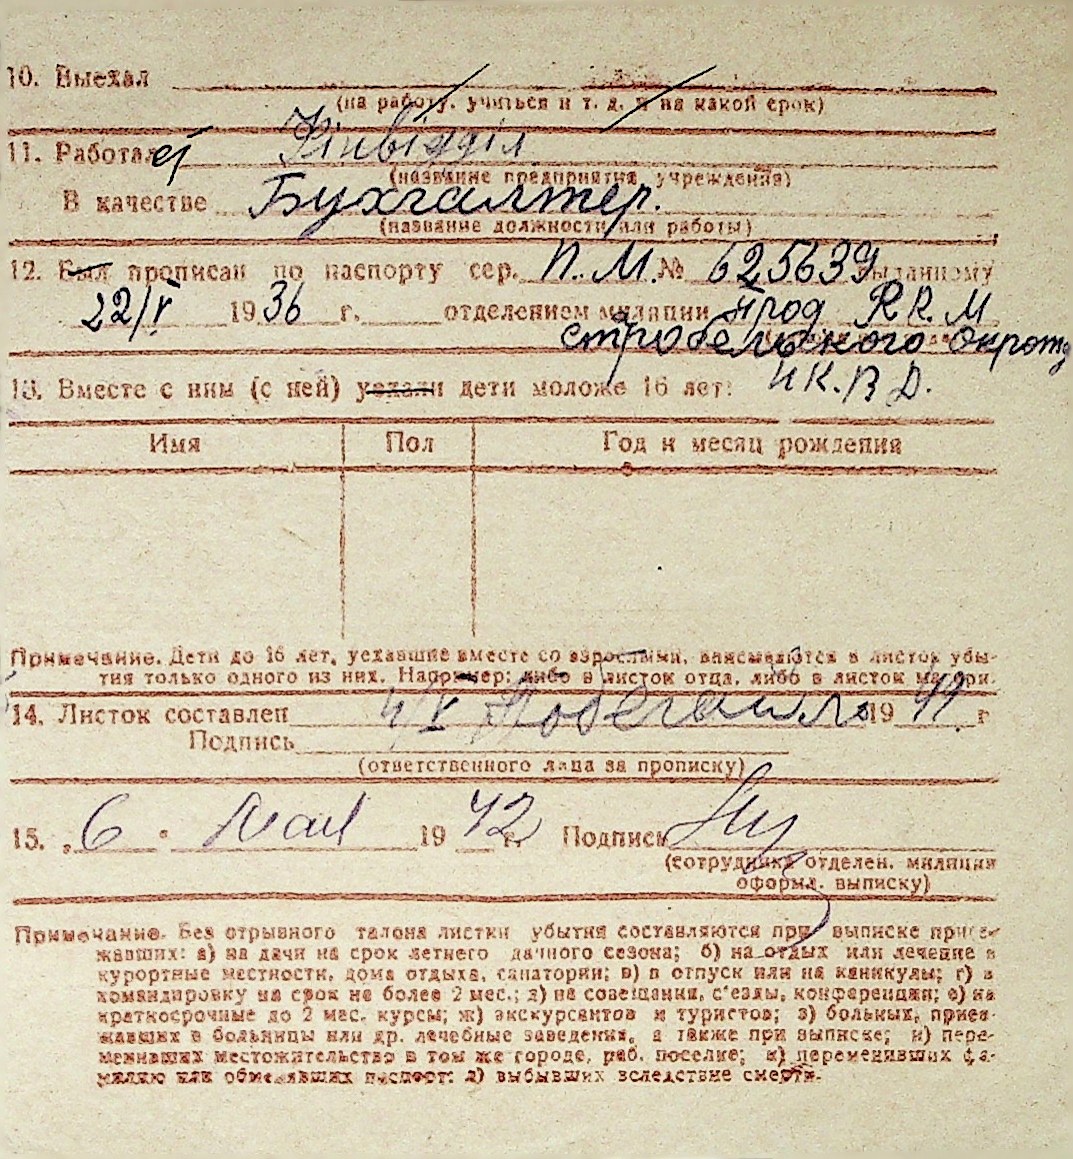 10. Выехал
(на работу, учиться и т. д. и на какой срок)
11. Работал ет Фінвідділ
(название предприятия, учреждения)
В качестве Бухгалтер.
(название должности или работы)
12. Был прописан по паспорту сер. П. М. № 625639 выданному
22/V 1936 г. отделением милиции
13. Вместе с ним (с ней) уехали дети моложе 16 лет: Н К. В Д.
Имя Пол Год и месяц рождения
Примечание. Дети до 16 лет, уехавшие вместе со взрослыми, вписываются в листок убы-
тия только одного из них. Например: либо в листок отца, либо в листок матери.
14. Листок составлен 4/V 19 г
Подпись
(ответственного лица за прописку)
15. „6" Мая 1942 г. Подпись
(сотрудника отделен. милиции
оформл. выписку)
Примечание. Без отрывного талона листки убытия составляются при выписке приез-
жавших: а) на дачи на срок летнего дачного сезона; б) на отдых или лечение в
курортные местности, дома отдыха, санатории; в) в отпуск или на каникулы; г) в
командировку на срок не более 2 мес.; д) на совещания, с'езды, конференции; е) на
краткосрочные до 2 мес. курсы; ж) экскурсантов и туристов; з) больных, приез-
жавших в больницы или др. лечебные заведения, а также при выписке; и) пере-
менивших местожительство в том же городе, раб. поселке; к) переменивших фа-
милию или обменявших паспорт; л) выбывших вследствие смерти.